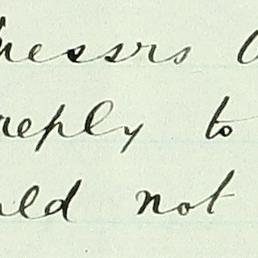 messrs
reply to
ld not